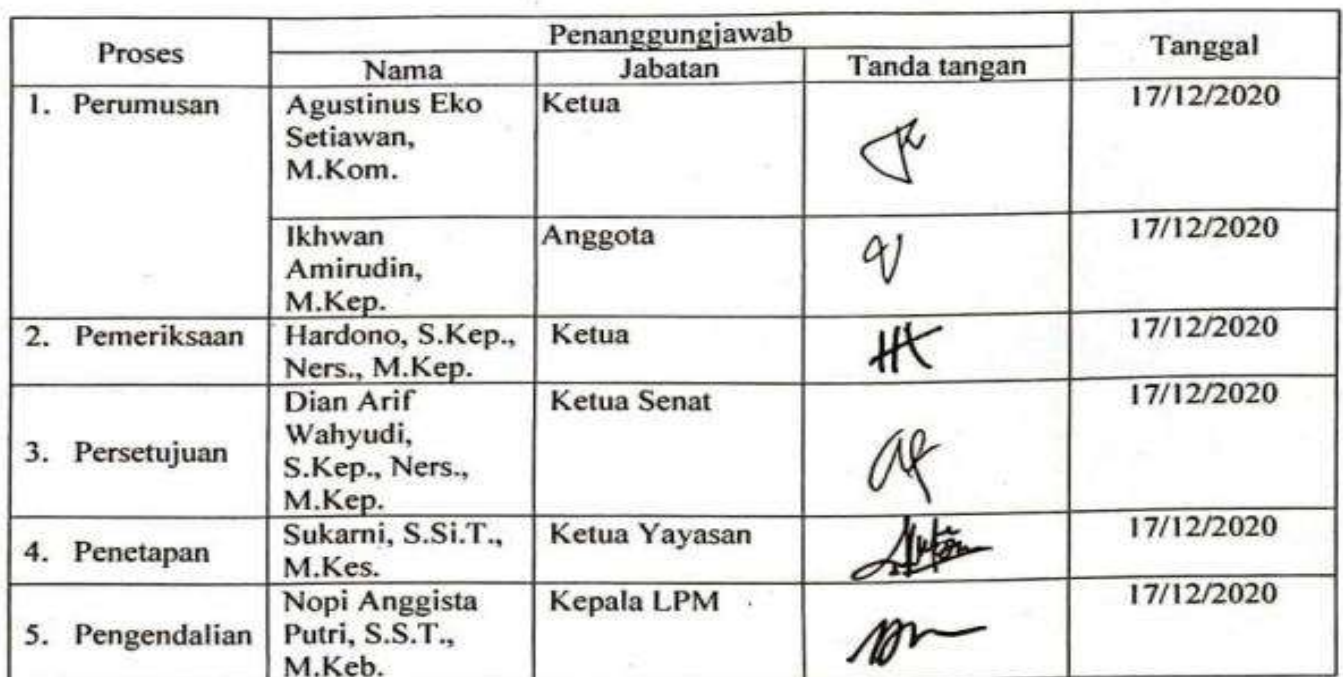 Proses
Penanggungjawab
Tanggal
Nama
Jabatan
Tanda tangan
1. Perumusan
Agustinus Eko
Setiawan,
M.Kom.
Ketua
17/12/2020
Ikhwan
Amirudin,
M.Kep.
Anggota
17/12/2020
2. Pemeriksaan
Hardono, S.Kep.,
Ners., M.Kep.
Ketua
17/12/2020
3. Persetujuan
Dian Arif
Wahyudi,
S.Kep., Ners.,
M.Kep.
Ketua Senat
17/12/2020
4. Penetapan
Sukarni, S.Si.T.,
M.Kes.
Ketua Yayasan
17/12/2020
5. Pengendalian
Nopi Anggista
Putri, S.S.T.,
M.Keb.
Kepala LPM
17/12/2020